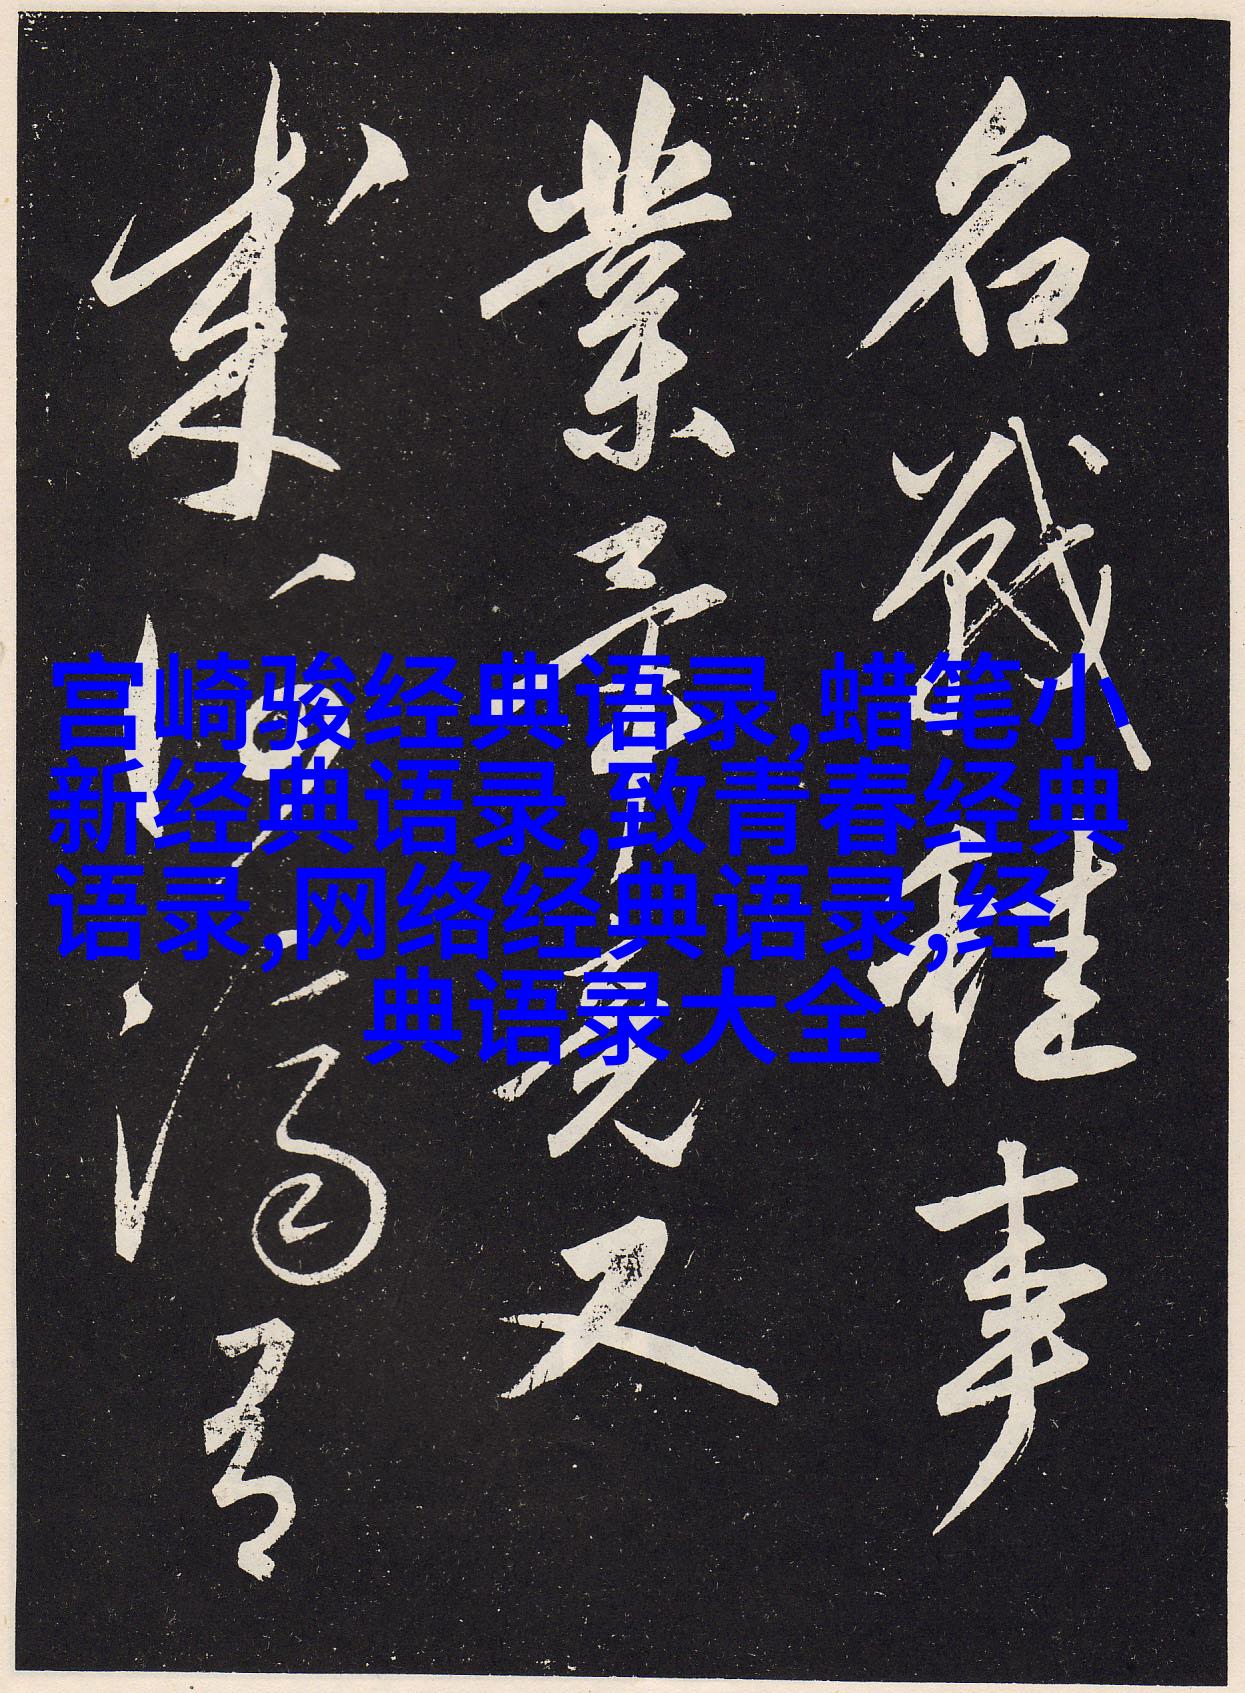 宫崎骏经典语录,蜡笔小
新经典语录,致青春经典
语录,网络经典语录,经
典语录大全
名戡難事
業又